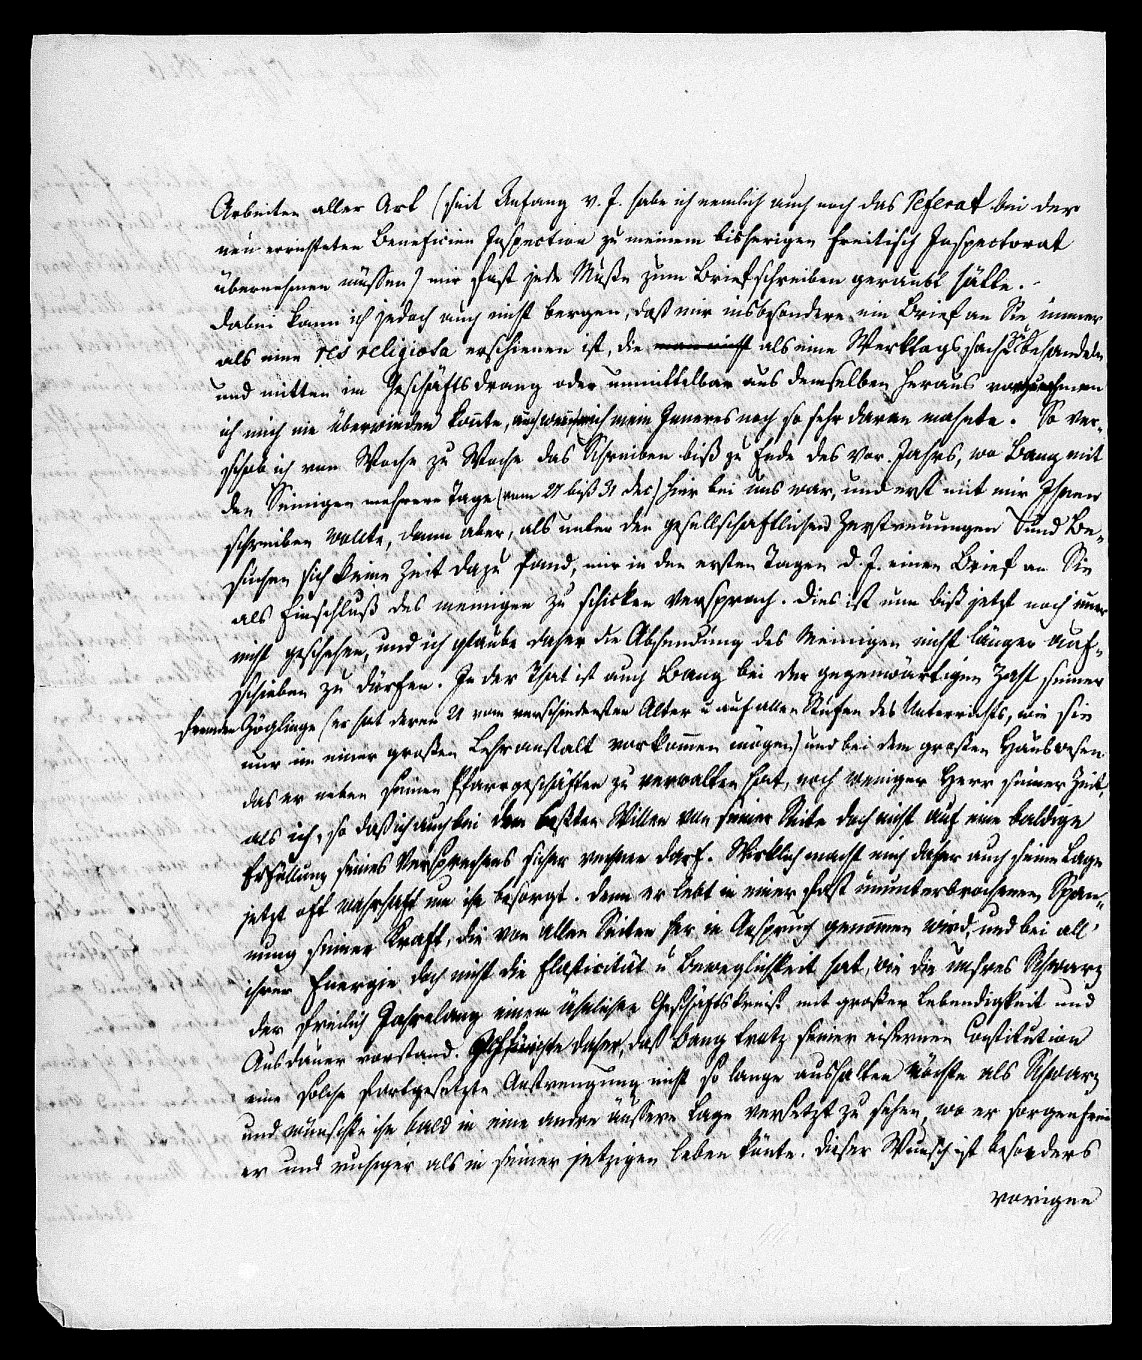 Arbeiten aller Art (seit Anfang v. J. habe ich nemlich auch noch das Referat bei der
neu errichteten Beneficien Inspection zu meinem bisherigen Freitisch Inspectorat
übernehmen müssen) mir fast jede Muße zum Briefschreiben geraubt hätte. –
Dabei kann ich jedoch auch nicht bergen, daß mir insbesondere ein Brief an Sie immer
als eine res religiosa erschienen ist, die man nicht als eine Werktagssache zu behandeln
und mitten im Geschäftsdrang oder unmittelbar aus demselben heraus vorzunehmen
ich mich nie überwinden konnte, auch wenn mich mein Inneres noch so sehr daran mahnte. So ver-
schob ich von Woche zu Woche das Schreiben biß zu Ende des vor. Jahrs, wo Bang mit
den Seinigen mehrere Tage (vom 27 biß 31 Dec) hier bei uns war, und erst mit mir Ihnen
schreiben wollte, dann aber, als unter den gesellschaftlichen Zerstreuungen und Be-
suchen sich keine Zeit dazu fand, mir in den ersten Tagen d. J. einen Brief an Sie
als Einschluß des meinigen zu schicken versprach. Dies ist nun biß jetzt noch immer
nicht geschehen, und ich glaube daher die Absendung des Meinigen nicht länger auf-
schieben zu dürfen. In der That ist auch Bang bei der gegenwärtigen Zahl seiner
fremden Zöglinge (er hat deren 21 vom verschiedensten Alter u auf allen Stufen des Unterrichts, wie sie
nur in einer großen Lehranstalt vorkommen mögen) und bei dem großen Hauswesen
das er neben seinen Pfarrgeschäften zu verwalten hat, noch weniger Herr seiner Zeit,
als ich, so daß ich auch bei dem besten Willen von seiner Seite doch nicht auf eine baldige
Erfüllung seines Versprechens sicher rechnen darf. Wirklich macht mich daher auch seine Lage
jetzt oft wahrhaft um ihn besorgt. Denn er lebt in einer fast ununterbrochenen Span-
nung seiner Kraft, die von allen Seiten her in Anspruch genommen wird, und bei all'
ihrer Energie doch nicht die Elasticität u Beweglichkeit hat, wie die unsres Schwarz
der freilich Jahrelang einem ähnlichen Geschäftskreiß mit großer Lebendigkeit und
Ausdauer vorstand. Ich fürchte daher, daß Bang trotz seiner eisernen Constitution
eine solche fortgesetzte Anstrengung nicht so lange aushalten möchte als Schwarz
und wünschte ihn bald in eine andre äussere Lage versetzt zu sehen, wo er sorgenfrei
er und ruhiger als in seiner jetzigen leben könte. Dieser Wunsch ist besonders
vorigen